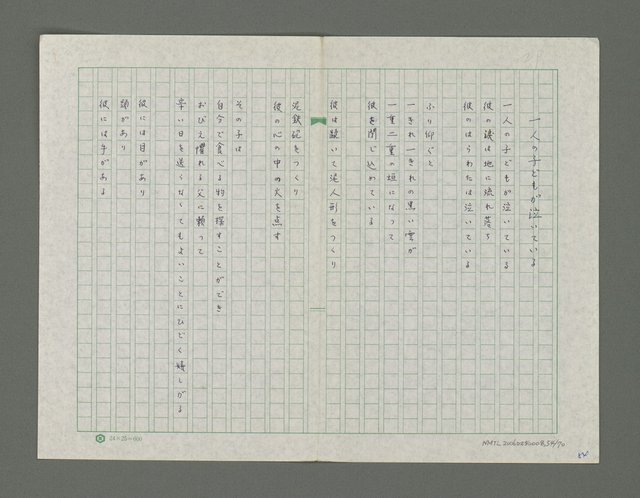 一人の子どもが泣いている
一人の子どもが泣いている
彼の涙は地に流れ落ち
彼のはらわたは泣いている
ふり仰ぐと
一きれ一きれの黒い雲が
一重二重の垣になって
彼を閉じ込めている
彼は跪いて泥人形をつくり
泥鉄砲をつくり
彼の心の中の火を点す
その子は
自分で食べる物を探すことができ
おびえ慣れる父に頼って
辛い日を送らなくてもよいことにひどく嬉しがる
彼には目があり
頭があり
彼には手がある
24×25=600
NMTL 20060280008_58/70